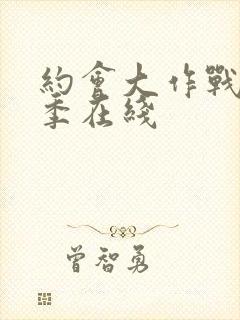 約會大作戰
季在綫
曾智勇